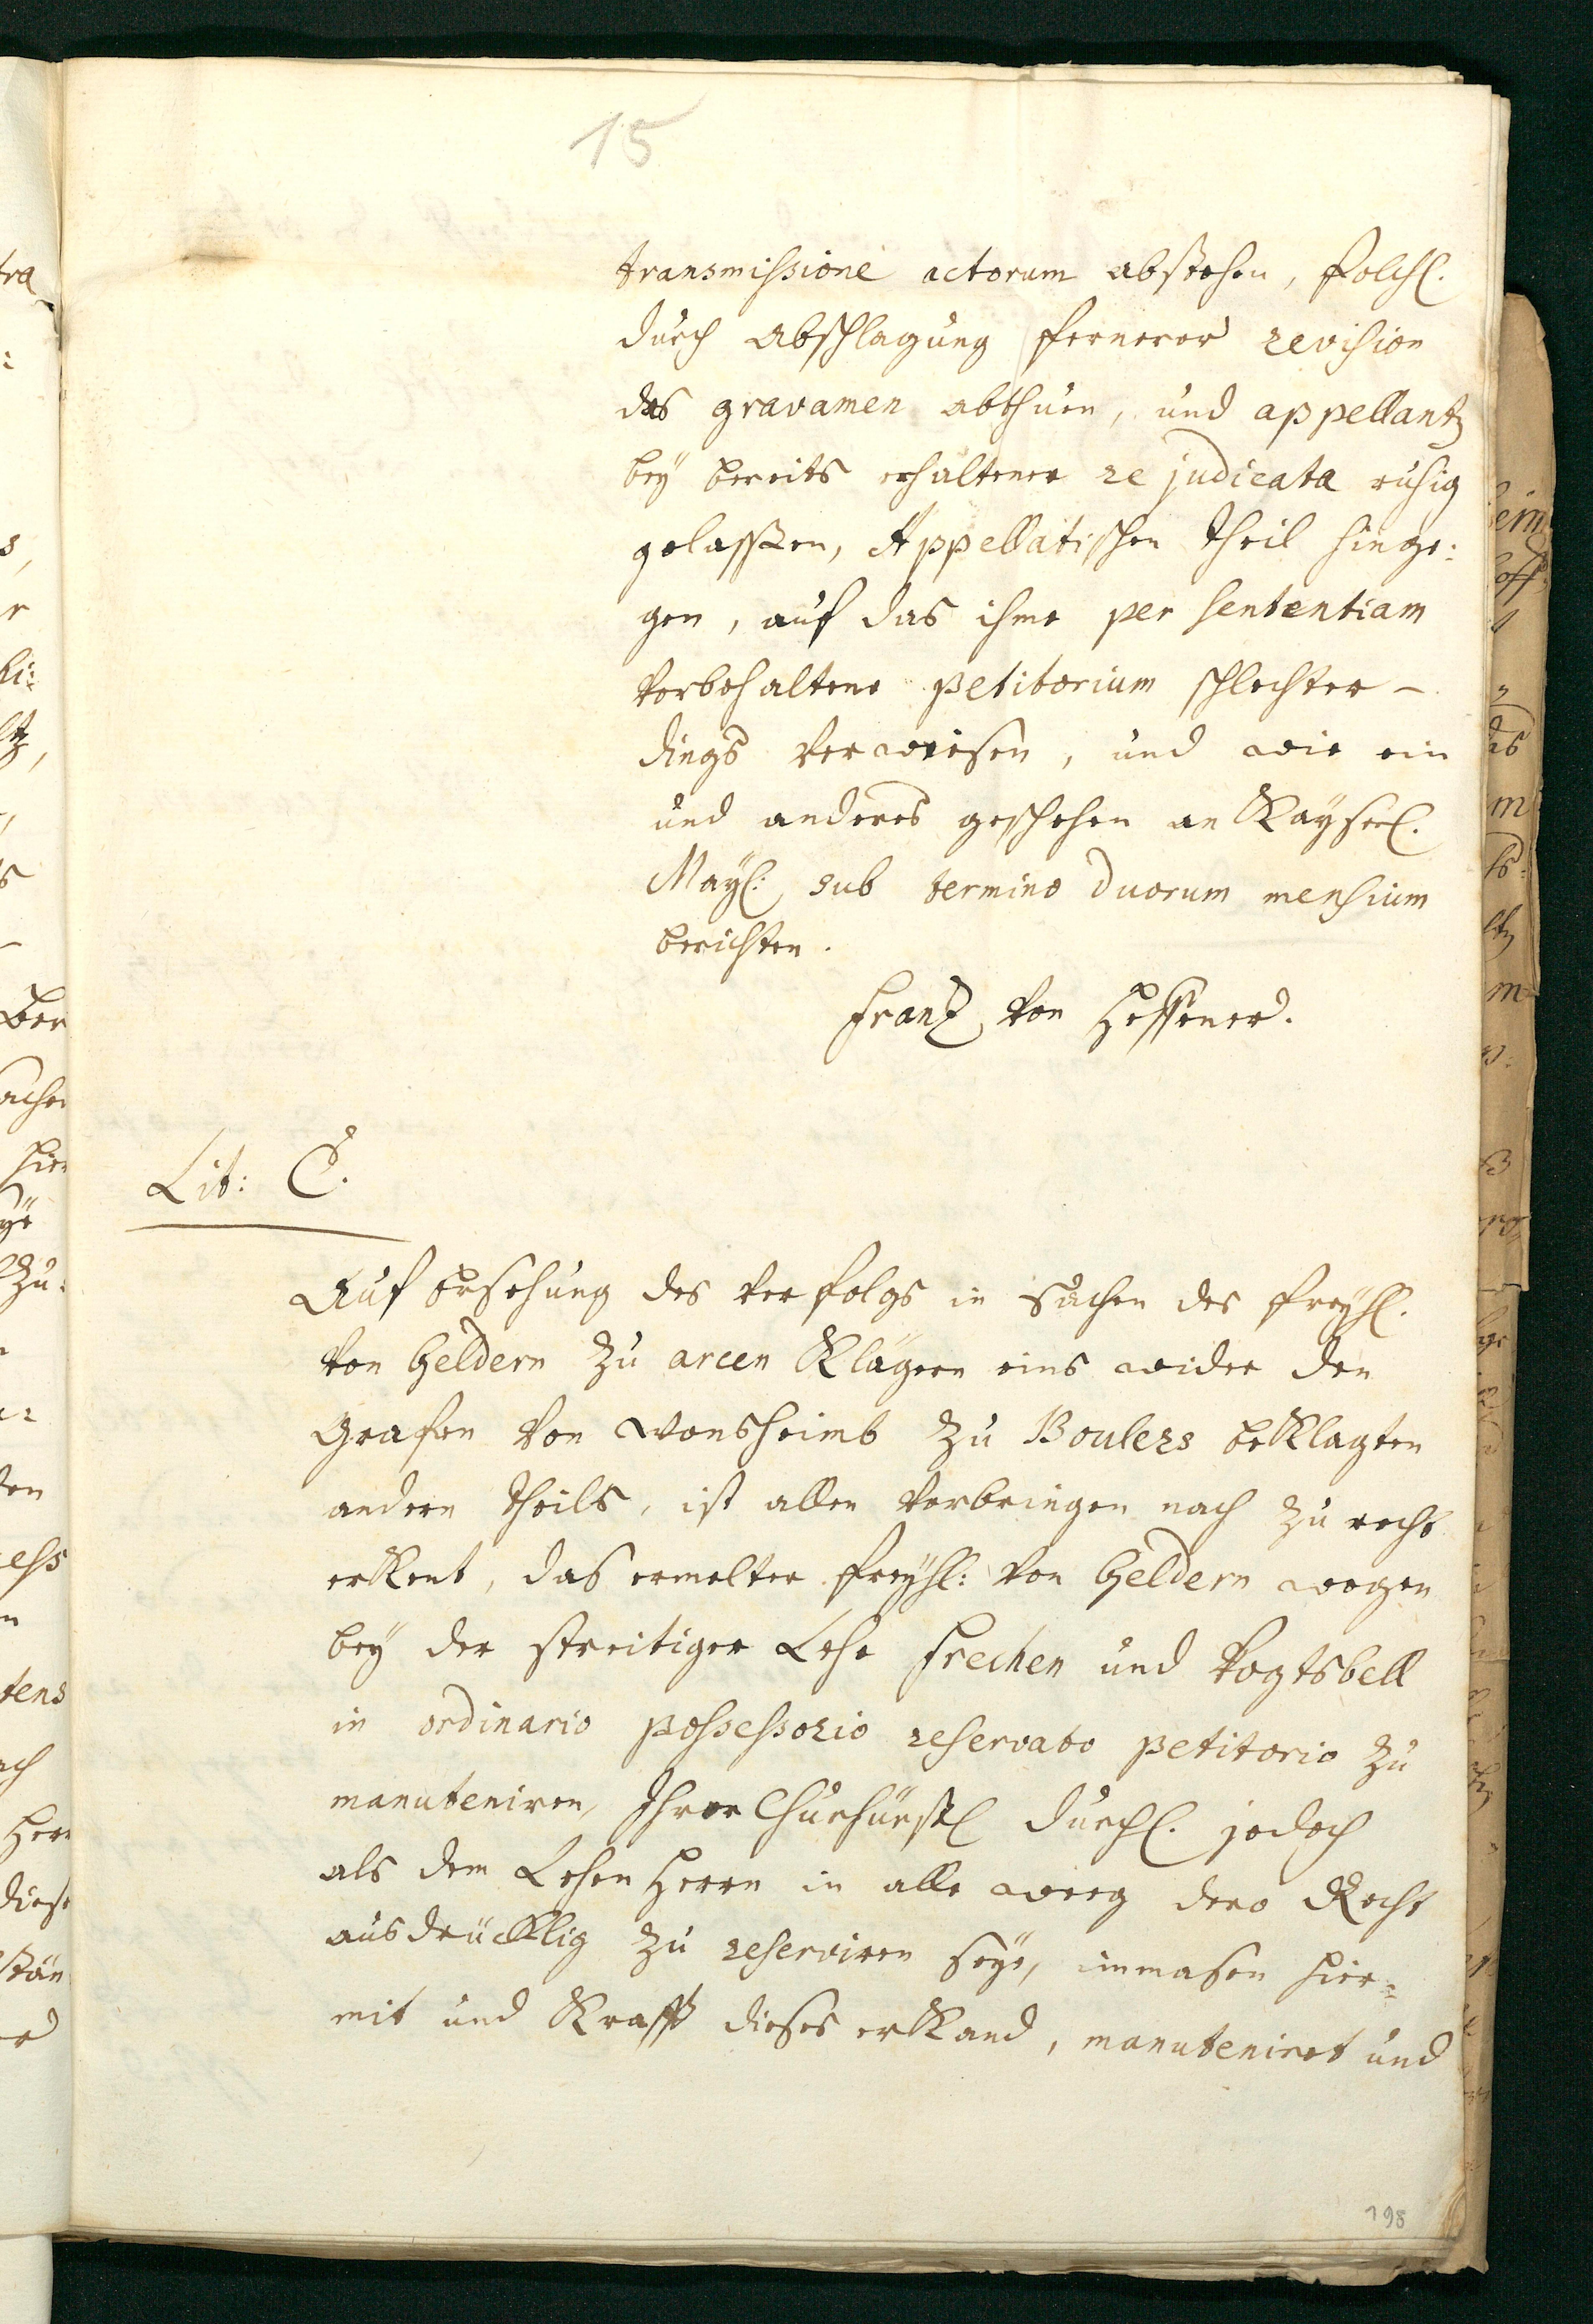 15
transmissione actorum abstehen, folchl.
durch abschlagung fernerer revision
das gravamen abthuen, und appellantz
bey bereits erhaltener re judicata ruhig
gelassen, Appellatischen theil hinge:
gen, auf das ihme per sententiam
vorbehaltene petitorium schlechter-
dings verweisen, und wie ein
und anderes geschehen an Kayserl.
Mayl: sub termino duorum mensium
berichten.
Frantz von Hessener.
Lit: C.
Auf Ersehung des verfolgs in sachen des freyhl.
von Geldern zu arcen Klägern eins wider den
Grafen von Wonsheimb zu Boulers beklagten
andern theils, ist allen vorbringen nach zu recht
erkent, das ermelter freyhl: von Geldern wegen
bey der streitiger Lehe frechen und Vogtsbell
in ordinario possessorio reservato petitorio zu
manuteniren, Ihrer Churfürstl durchl. jedoch
als dem Lehen Herrn in alle weeg dero Recht
ausdrücklig zu reserviren seye, inmasen hier=
mit und Krafft dieses erkand, manuteniret und
198